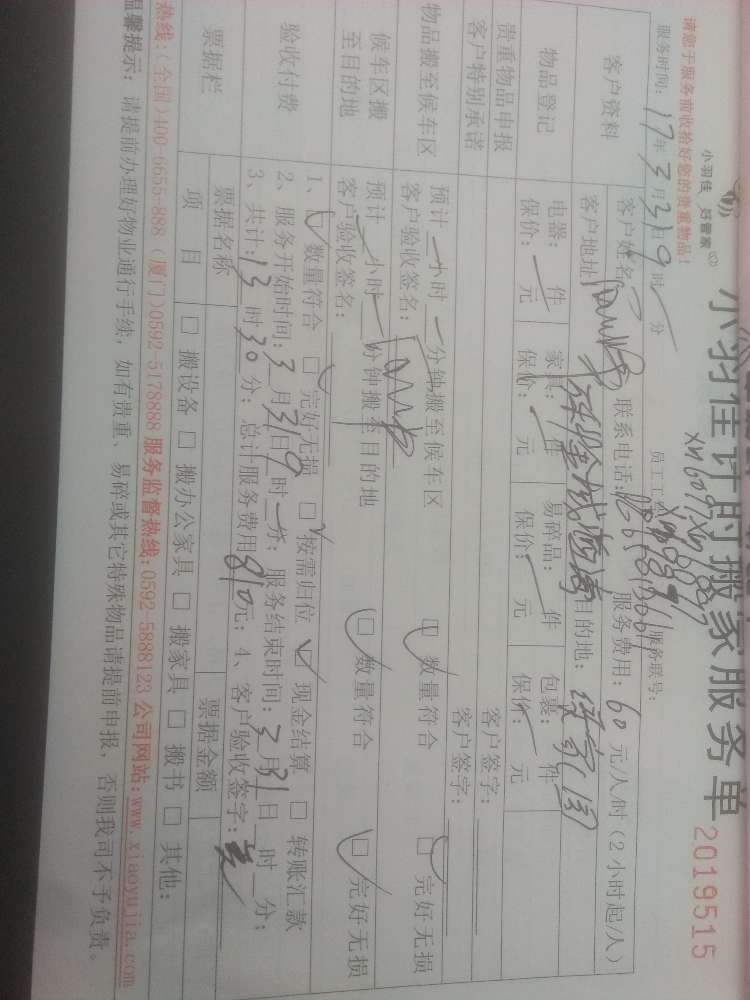 小羽佳计时搬家服务单 2019515
小羽佳 好管家
请您于服务前收拾好您的贵重物品!
服务时间: 17年3月31日9时 分 员工工 服务联号:
客户资料 客户姓名: 联系电话: 服务费用: 60元/人/时(2小时起/人)
客户地址: 目的地:
物品登记 电器: 件 家具: 件 易碎品: 件 包裹: 件
保价: 元 保价: 元 保价: 元 保价: 元
贵重物品申报 客户签字:
客户特别承诺 客户签字:
物品搬至候车区 预计 小时 分钟搬至候车区 数量符合 完好无损
客户验收签名:
候车区搬至目的地 预计 小时 分钟搬至目的地 数量符合 完好无损
客户验收签名:
验收付费 1、 数量符合 完好无损 按需归位 现金结算 转账汇款
2、服务开始时间: 3月31日9时 分; 服务结束时间: 3月31日 时 分;
3、共计: 13时30分; 总计服务费用810元; 4、客户验收签字:
票据栏 票据名称 票据金额
项 目 □ 搬设备 □ 搬办公家具 □ 搬家具 □ 搬书 □ 其他:
热线:(全国)400-6655-888 (厦门)0592-5178888 服务监督热线:0592-5888123 公司网站:www.xiaoyujia.com
温馨提示: 请提前办理好物业通行手续, 如有贵重、易碎或其它特殊物品请提前申报, 否则我司不予负责。